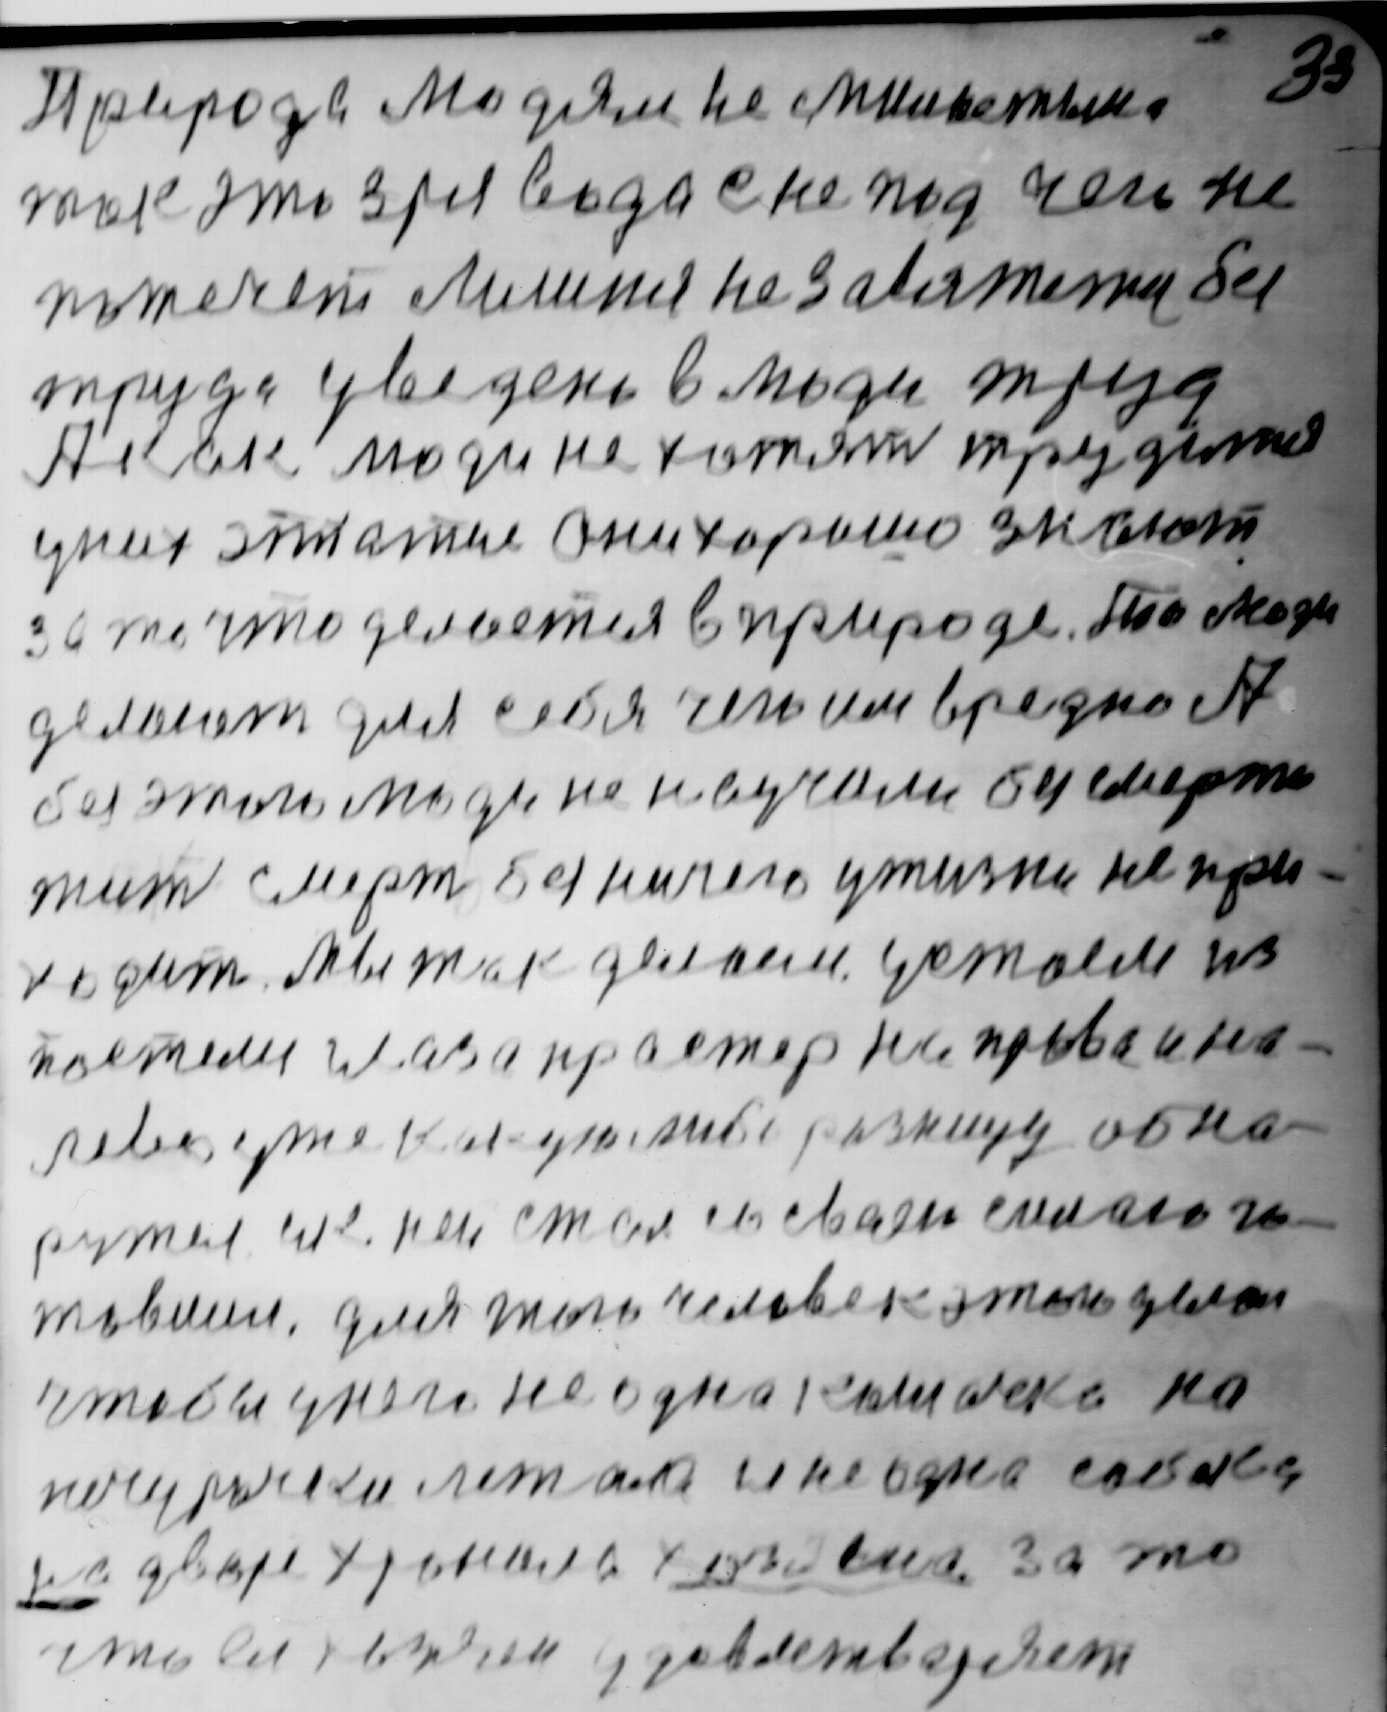 33
Природа людям не милостына
так это зря вода с не под чего не
потечет Линия не завяжеты без
труда уведено в люди труд
А как люди не хотят трудится
у них этатые Они хорошо знают
за то что делается в природе. Это люди
делают для себя чего им вредно А
без этого люди не научили без смерти
жит смерт без ничего у жизни не при-
ходит. Мы так делаем. устаем из
постели глаза простер на права и на-
лева уже какую либо разницу обна-
ружел стал со свази смлаго го-
товлии. для того человек этого делал
чтобы у него не одна кошачка на
печурочки летала и не одна собачка
на дворе хранила хозаина. За то
что бы хозяен удовлетваряет